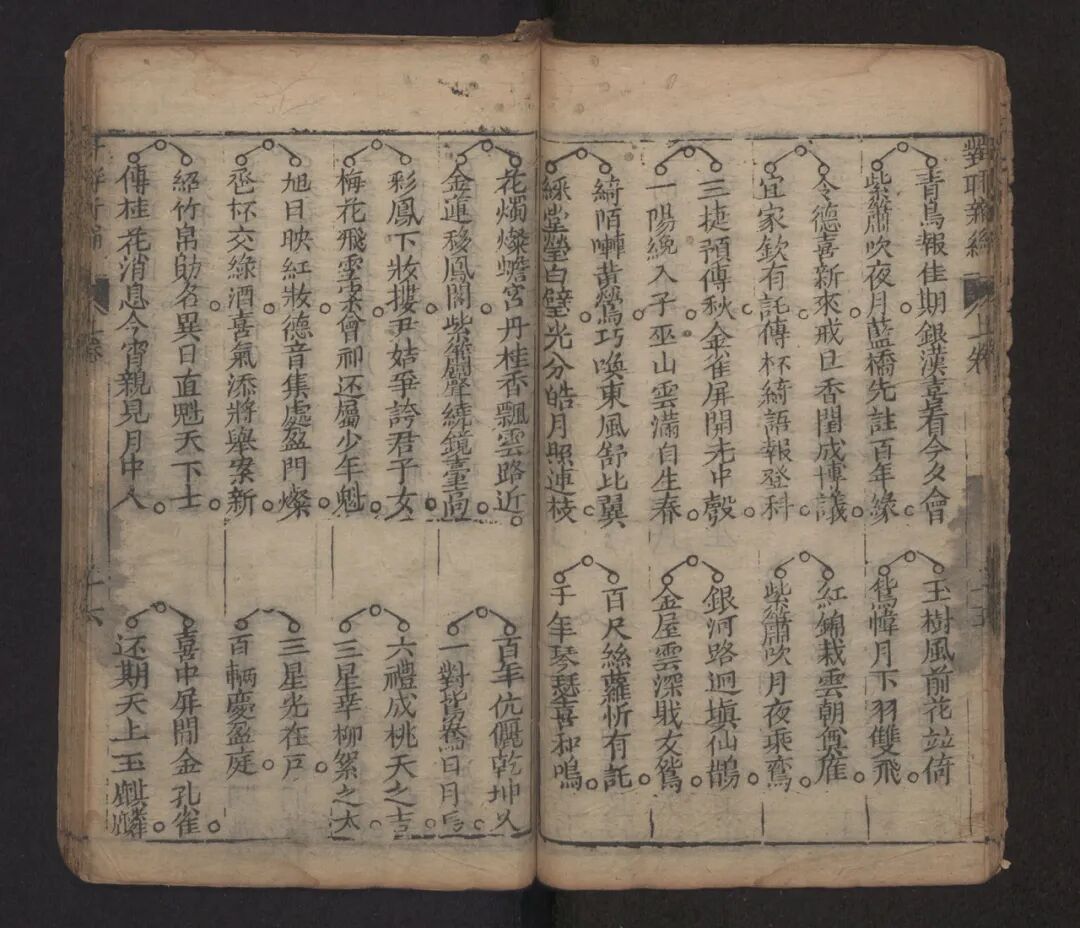 對聯
上卷
青鳥報佳期銀漢喜看今夕會
紫簫吹夜月藍橋先註百年緣
令德喜新來戒旦香閨成博議
宜家欽有託傳杯綺語報登科
三捷預傳秋金雀屏開先中彀
一陽纔入子巫山雲滿自生春
綺陌囀黃鶯巧喚東風舒比翼
綵堂瑩白璧光分皓月照連枝
玉樹風前花竝倚
鴛幃月下羽雙飛
紅 栽雲朝奠雁
紫簫吹月夜乘鸞
銀河路迥塡仙鵲
金屋雲深 文鴛
百尺絲蘿忻有託
千年琴瑟喜和鳴
花燭燦蟾宮丹桂香飄雲路近
金蓮移鳳閣紫簫聲繞鏡臺高
彩鳳下妝摟尹姞爭誇君子女
梅花飛雪案會 还屬少年魁
旭日映紅妝德音集處盈門燦
巹杯交綠酒喜氣添將舉案新
紹竹帛勛名異日直魁天下士
傳桂花消息今宵親見月中人
百年伉儷乾坤久
一對鴛鴦日月長
六禮成桃夭之吉
三星幸柳絮之才
三星光在戶
百輛慶盈庭
喜中屏間金孔雀
还期天上玉麒麟